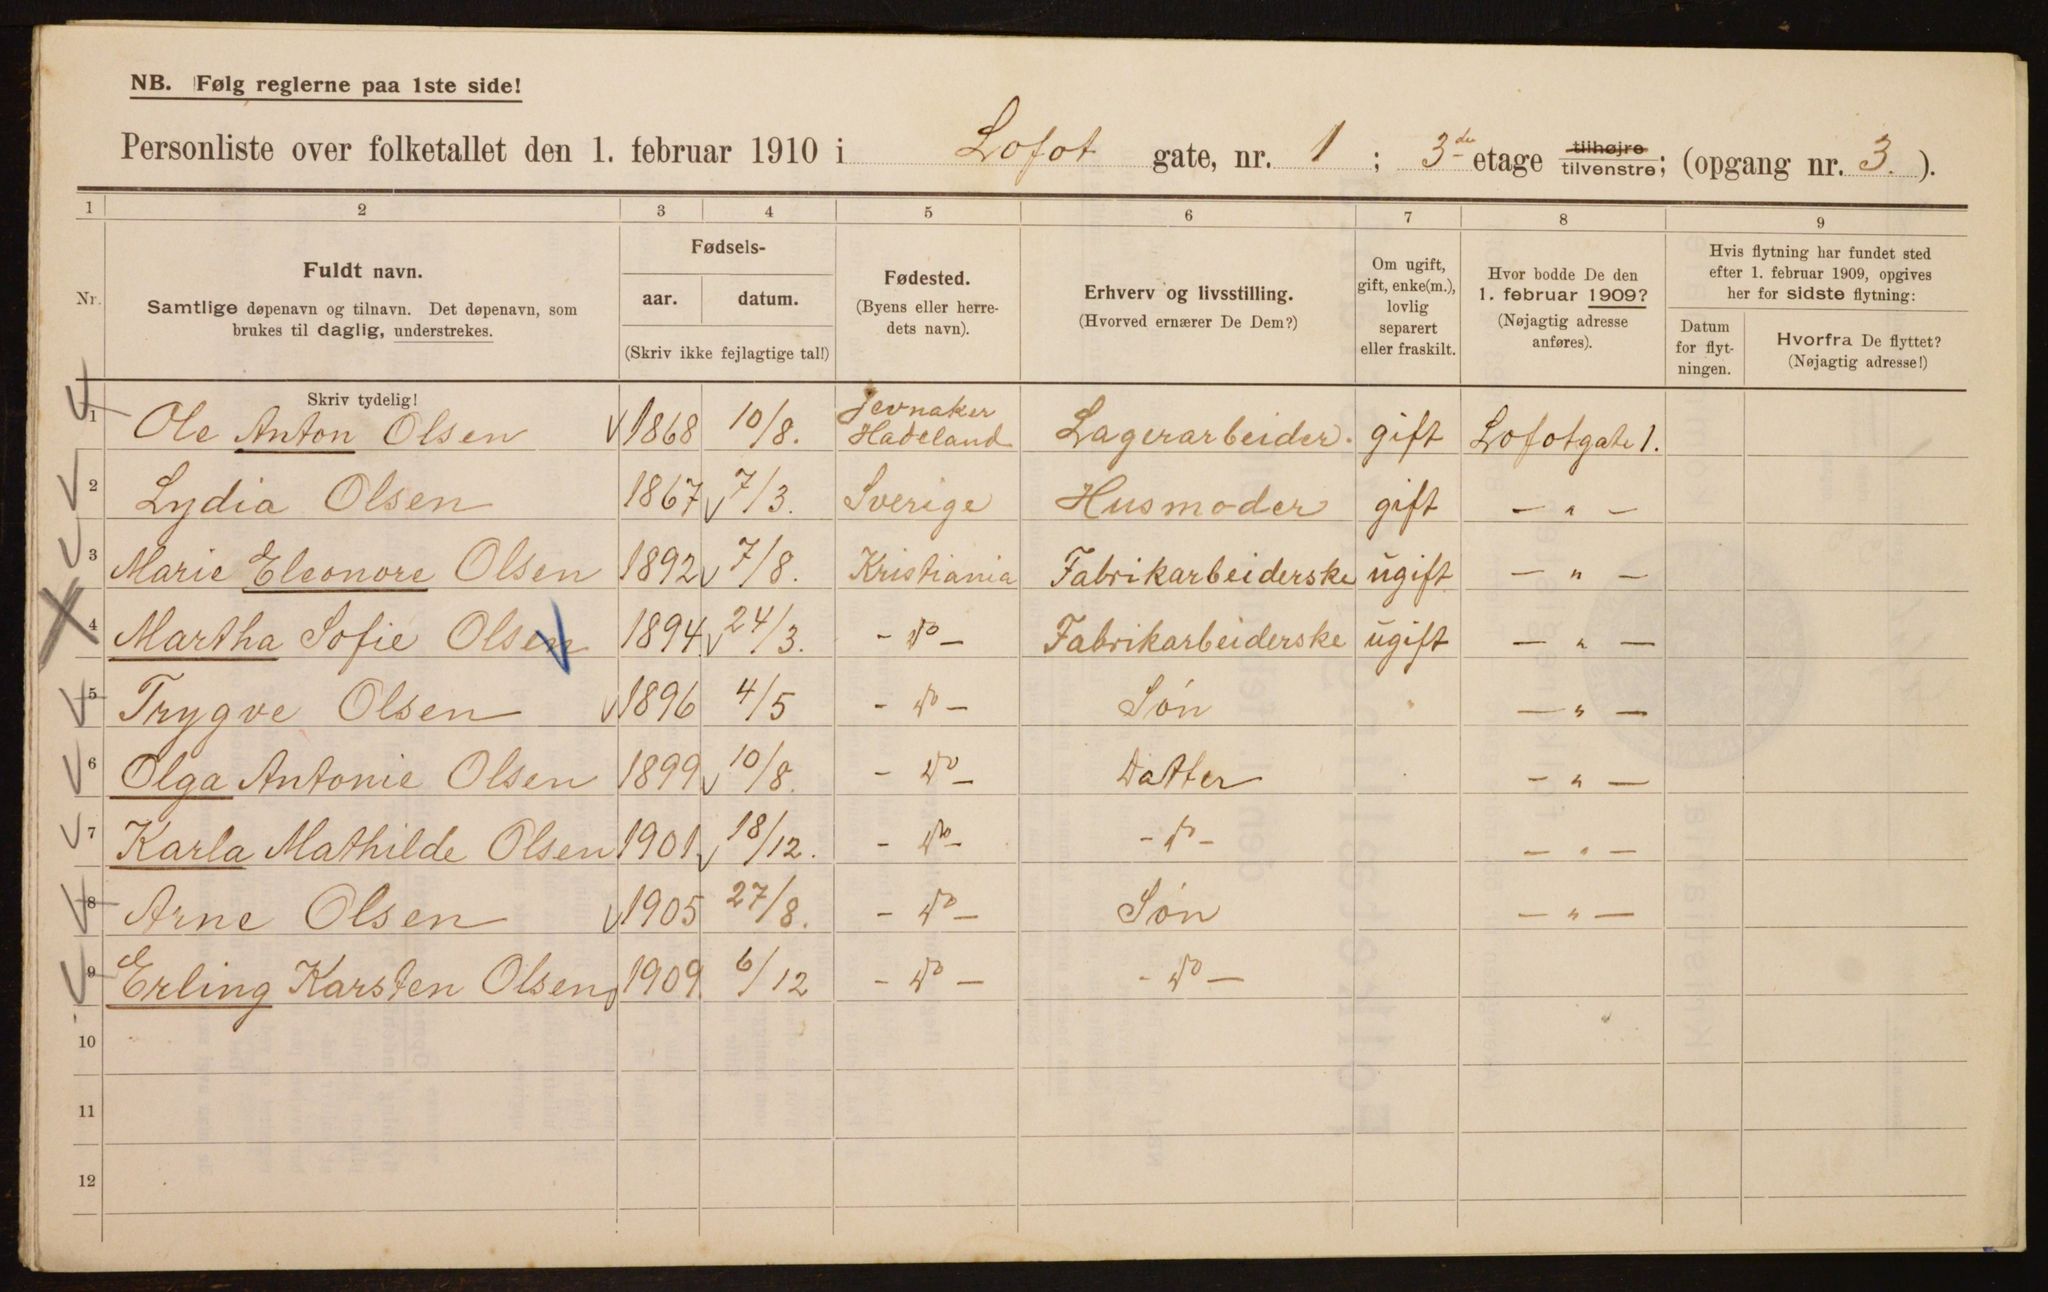 NB. Følg reglerne paa 1ste side!
Personliste over folketallet den 1. februar 1910 i Lofot gate, nr. 1 ; 3de etage tilhøjre tilvenstre; (opgang nr. 3. ).
1 2 3 4 5 6 7 8 9
Nr.
Fuldt navn.
Samtlige døpenavn og tilnavn. Det døpenavn, som
brukes til daglig, understrekes.
Fødsels-
aar. datum.
(Skriv ikke fejlagtige tal!)
Fødested.
(Byens eller herre-
dets navn).
Erhverv og livsstilling.
(Hvorved ernærer De Dem?)
Om ugift,
gift, enke(m.),
lovlig
separert
eller fraskilt.
Hvor bodde De den
1. februar 1909?
(Nøjagtig adresse
anføres).
Hvis flytning har fundet sted
efter 1. februar 1909, opgives
her for sidste flytning:
Datum
for flyt-
ningen.
Hvorfra De flyttet?
(Nøjagtig adresse!)
Skriv tydelig!
1 Ole Anton Olsen 1868 10/8. Jevnaker Hadeland Lagerarbeider. gift Lofotgate 1.
2 Lydia Olsen 1867 7/3. Sverige Husmoder gift — " —
3 Marie Eleonore Olsen 1892 7/8. Kristiania Fabrikarbeiderske ugift — " —
4 Martha Sofie Olsen 1894 24/3. - do - Fabrikarbeiderske ugift — " —
5 Trygve Olsen 1896 4/5 - do - Søn — " —
6 Olga Antonie Olsen 1899 10/8. - do - Datter — " —
7 Karla Mathilde Olsen 1901 18/12. - do - - do - — " —
8 Arne Olsen 1905 27/8. - do - Søn — " —
9 Erling Karsten Olsen 1909 6/12 - do - - do -
10
11
12